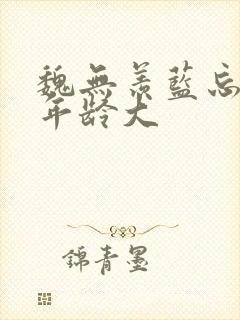 魏無羨藍忘
年齡大
錦青墨